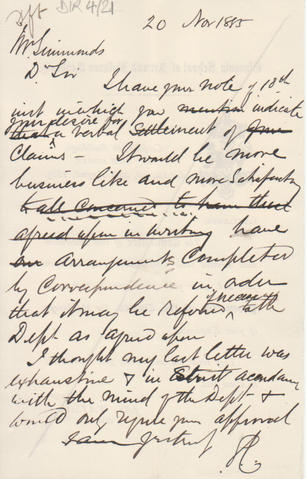 DIR 4/21
20 Nov 1885
Mr Simmonds
Dr Sir
I have your note of 18th
inst in which you mention indicate
your desire for
a verbal settlement of your
Claims – It would be more
business like and more Satisfactory
to all concerned to have these
agreed upon in writing have
an arrangements Completed
by Correspondence in order
that it may be referred if necessary to the
Dept as agreed upon
I thought my last letter was
exhaustive & in strict accordance
with the mind of the Dept &
would only require your approval
I am yrs truly